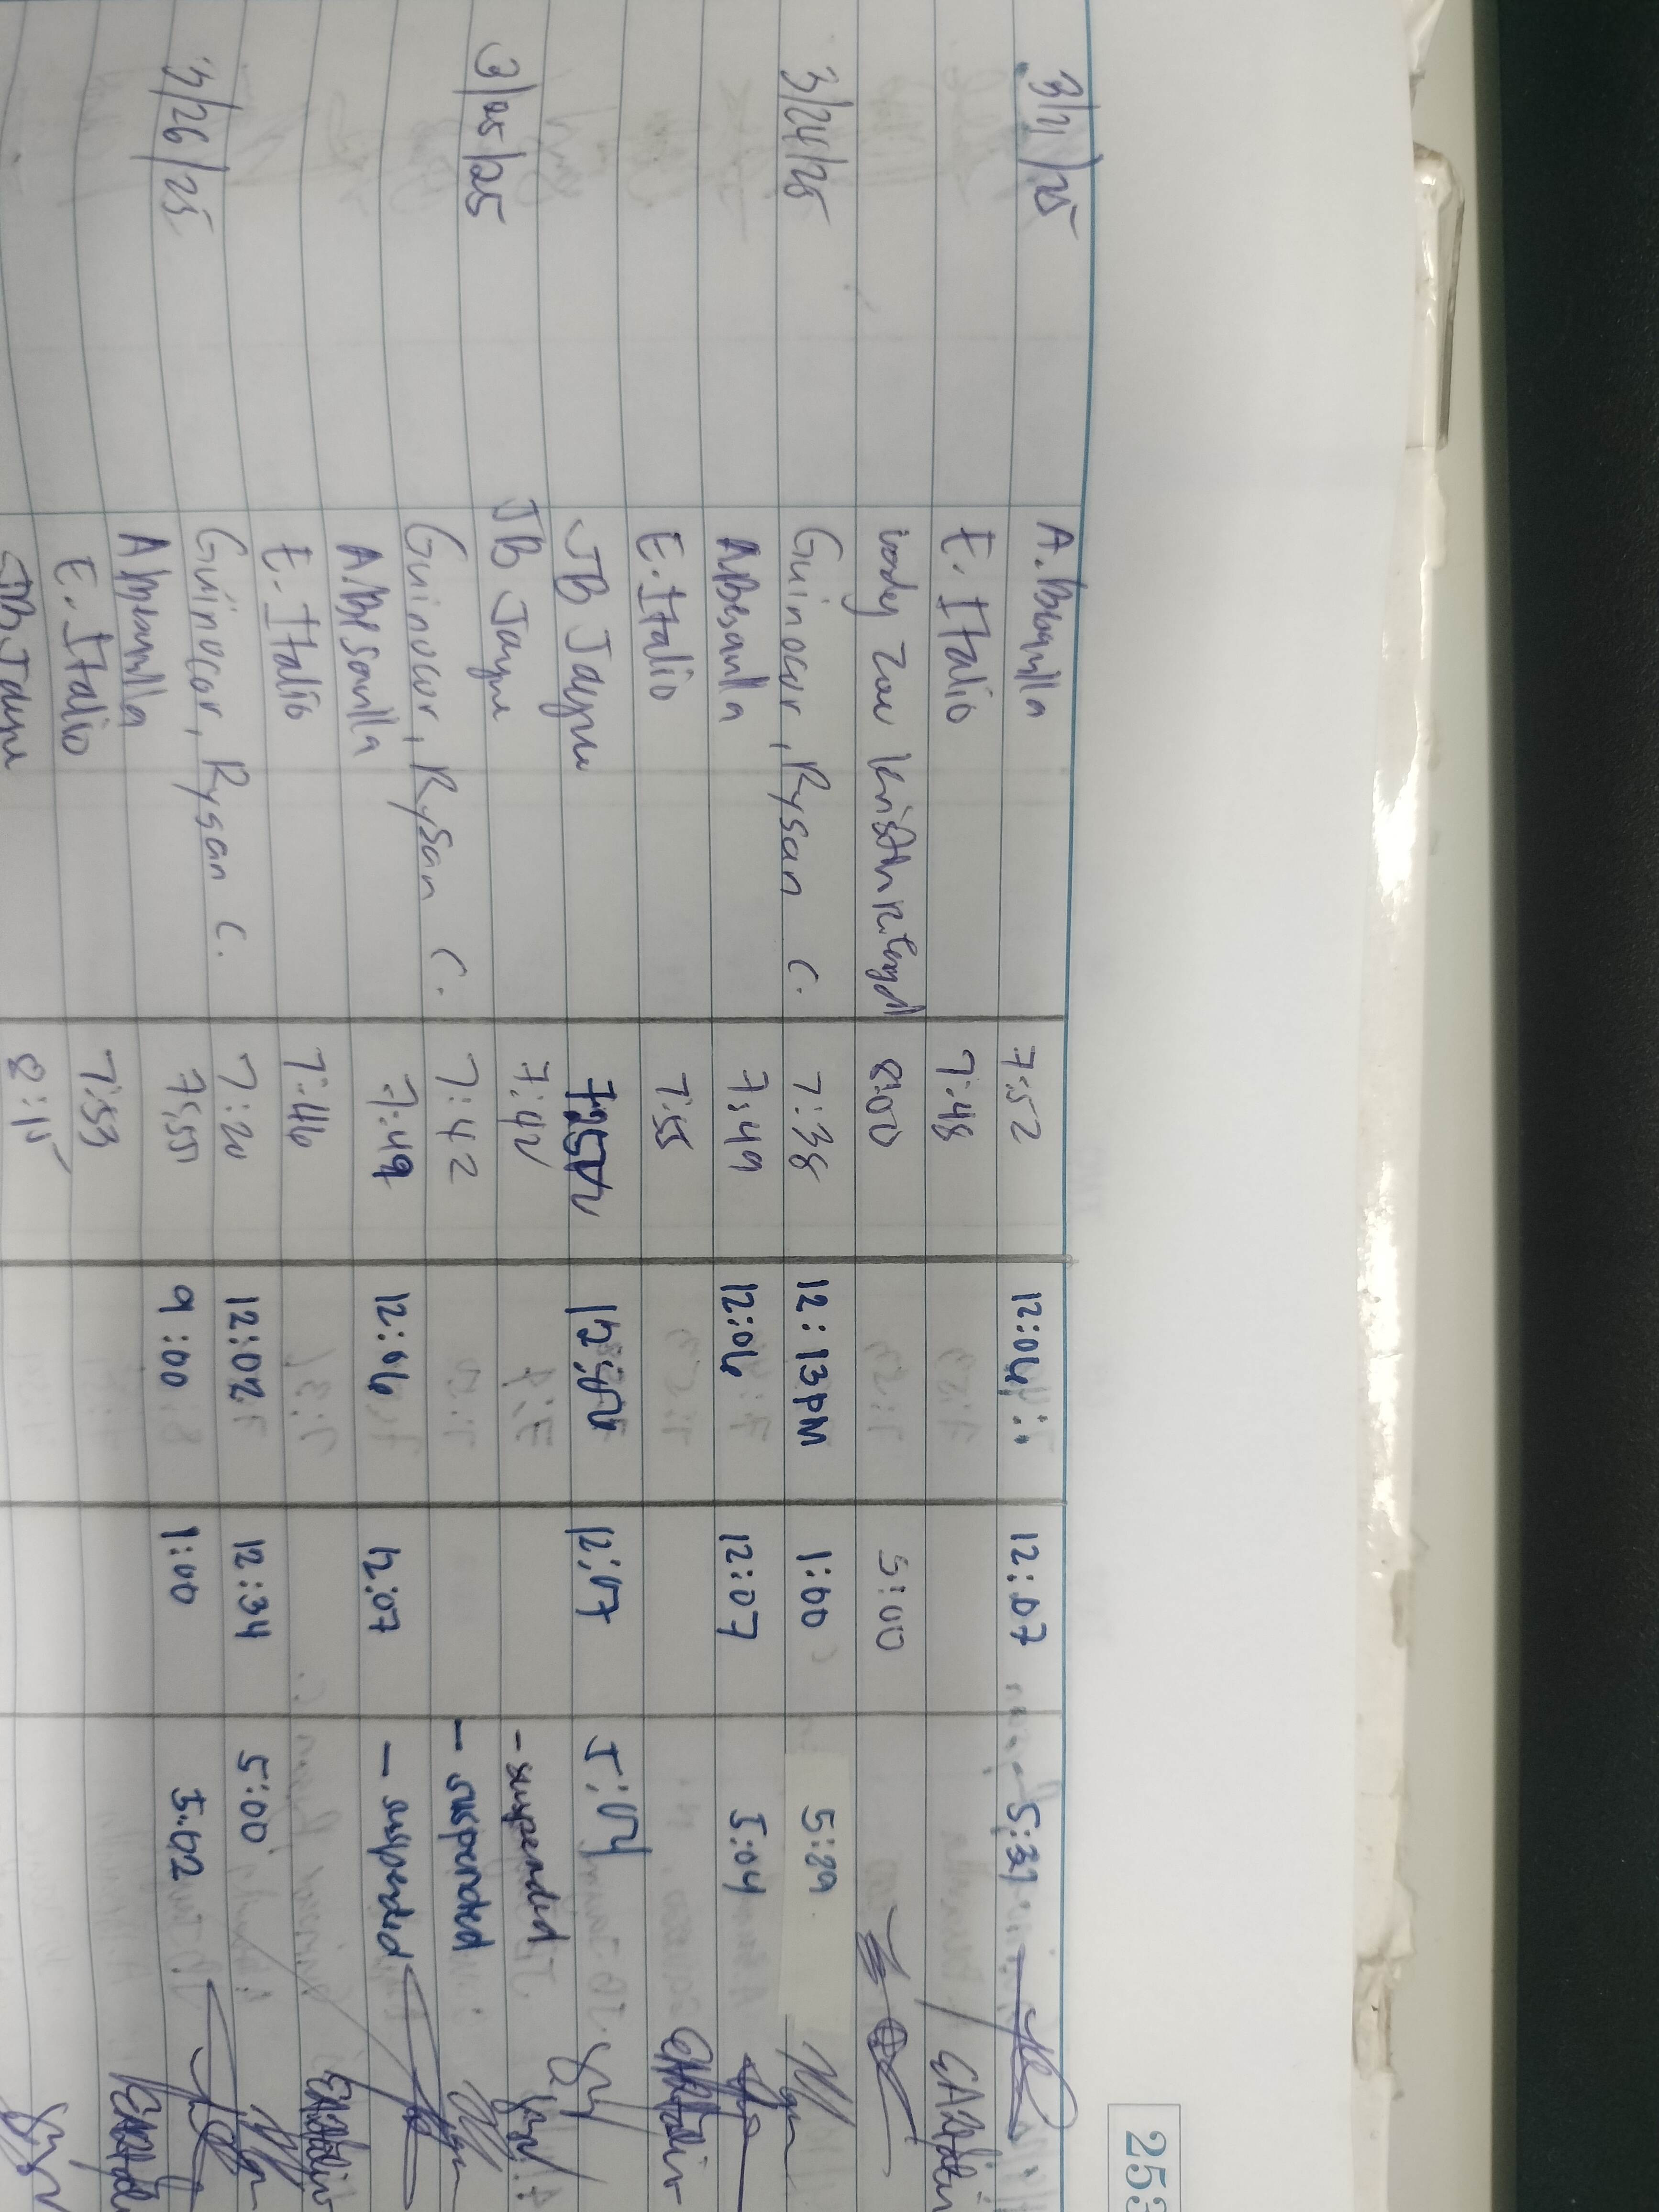 253
3/21/25 A. Abesamilla 7:52 12:04 12:07 5:31
E. Italio 7:48
Kristan 8:00 5:00
3/24/25 Guinocor, Rysan C. 7:38 12:13PM 1:00 5:29
ABesamilla 7:49 12:06 12:07 5:04
E. Italio 7:55
JB Jayme 12:06 12:07 5:04
3/25/25 JB Jayme 7:42 - suspended
Guinocor, Rysan C. 7:42 - suspended
ABesamilla 7:49 12:06 12:07 - suspended
E. Italio 7:46
3/26/25 Guinocor, Rysan C. 7:20 12:02 12:34 5:00
Abesamilla 7:55 9:00 1:00 5:02
E. Italio 7:53
JB Jayme 8:15